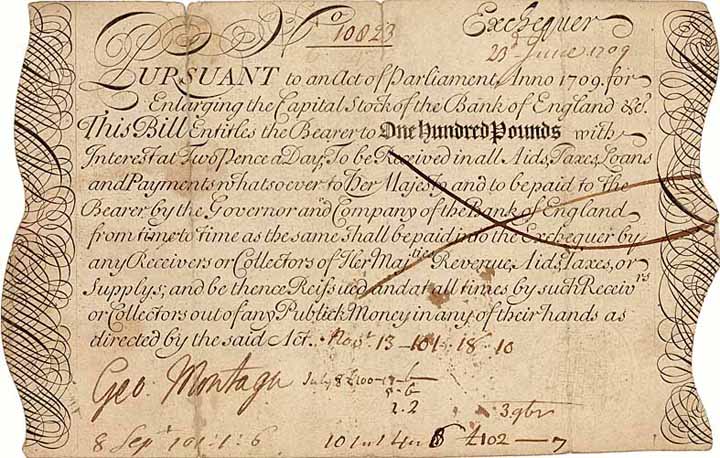 No 10823
Exchequer
23d June 1709
PURSUANT to an Act of Parliament Anno 1709. for
Enlarging the Capital Stock of the Bank of England &c.
This Bill Entitles the Bearer to One Hundred Pounds with
Interest at Two Pence a Day, To be Received in all Aids, Taxes, Loans
and Payments whatsoever to Her Majesty and to be paid to the
Bearer by the Governor and Company of the Bank of England
from time to time as the same shall be paid into the Exchequer by
any Receivers or Collectors of Her Majties Revenue, Aids, Taxes, or
Supplys; and be thence Reissued and at all times by such Receivrs
or Collectors out of any Publick Money in any of their hands as
directed by the said Act.. 13 – 101 18 10
Geo Montagu July 8 £100 –
2.2
3. 9br
8 Sept 101: 1: 6 £102 — 7